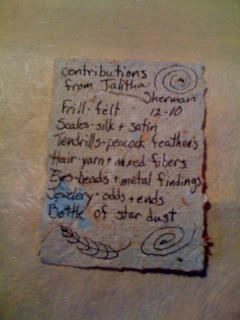 contributions
from Talitha
Sherman
Frill-felt 12-10
Scales-silk + satin
Tendrills-peacock feathers
Hair-yarn + mixed fibers
Eyes-beads + metal findings
Jewelery-odds + ends
Bottle of star dust